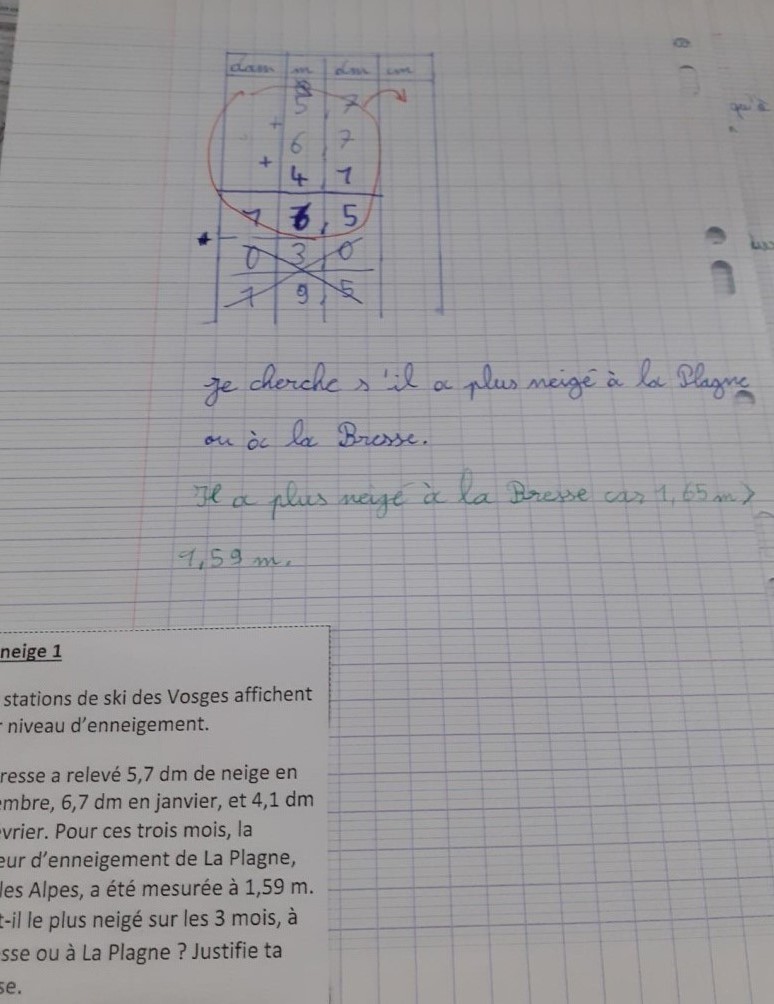 dam m dm cm
5,7
+
6,7
+ 4,1
1 6,5
0 3,0
1 9,5
Je cherche s'il a plus neigé à la Plagne
ou à la Bresse.
Il a plus neigé à la Bresse car 1,65 m >
1,59 m.
neige 1
stations de ski des Vosges affichent
r niveau d'enneigement.
resse a relevé 5,7 dm de neige en
embre, 6,7 dm en janvier, et 4,1 dm
évrier. Pour ces trois mois, la
eur d'enneigement de La Plagne,
les Alpes, a été mesurée à 1,59 m.
t-il le plus neigé sur les 3 mois, à
esse ou à La Plagne ? Justifie ta
se.